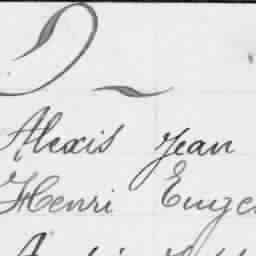 D
Alexis Jean
Henri Euge